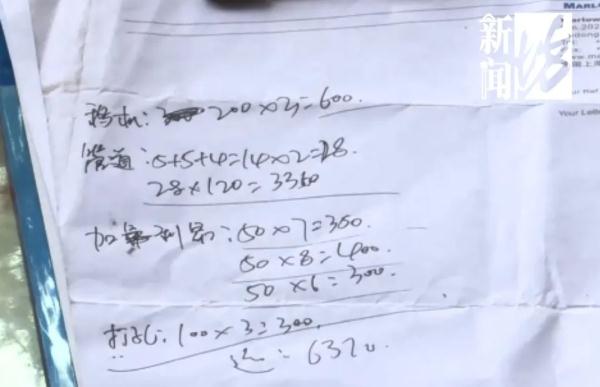 MARLO
新闻
移机: 200×3=600.
管道: 5+5+4=14×2=28
28×120=3360
加氟利昂: 50×7=350.
50×8=400.
50×6=300.
打孔: 100×3=300.
6370.
Your Ref
Your Lette